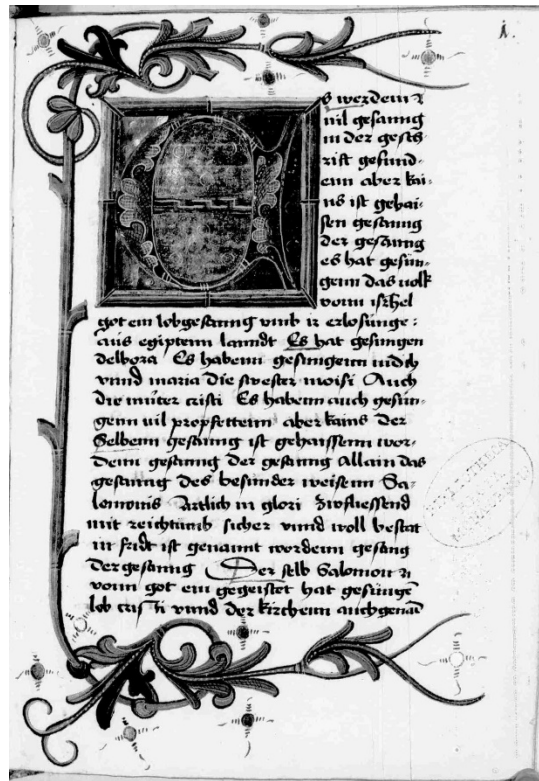 i.
Es werdenn
vil gesanng
in der gesch-
rift gefund-
enn aber kai-
ns ist gehai-
sen gesanng
der gesanng
es hat gesun-
genn das volk
vonn israhel
got ein lobgesanng vmb ir erlosunge:
aus egiptenn lanndt Es hat gesungen
delbora Es habenn gesungenn iudith
vnnd maria die swester moisi Auch
die muter cristi Es habenn auch gesun-
genn vil propfettenn aber kains der
Selbenn gesanng ist gehaissenn wor-
denn gesanng der gesanng Allain das
gesanng des besunder weisenn Sa-
lomonis Artlich in glori zwfliessend
mit reichtumb sicher vnnd woll bestat
in fridt ist genannt wordenn gesang
der gesanng Der selb Salomon
vonn got ein gegeistet hat gesungen
lob cristi vnnd der kirchenn auch genad